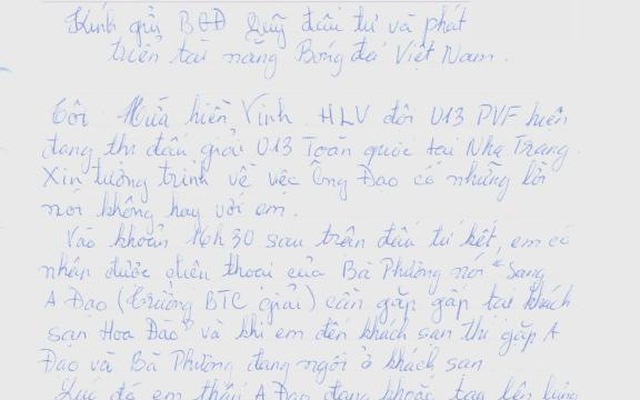 Kính gửi BGĐ Quỹ đầu tư và phát
triển tài năng Bóng đá Việt Nam.
Tôi Hứa hiền Vinh HLV đội U13 PVF hiện
đang thi đấu giải U13 Toàn quốc tại Nha Trang.
Xin tường trình về việc Ông Đạo có những lời
nói không hay với em.
Vào khoản 16h30 sau trận đấu tứ kết, em có
nhận được điện thoại của Bà Phương nói "Sang
A Đạo (Trưởng BTC giải) cần gặp gấp tại khách
sạn Hoa Đào" và khi em đến khách sạn thì gặp A
Đạo và Bà Phương đang ngồi ở khách sạn
Lúc đó em thấy A Đạo đang khoác tay lên